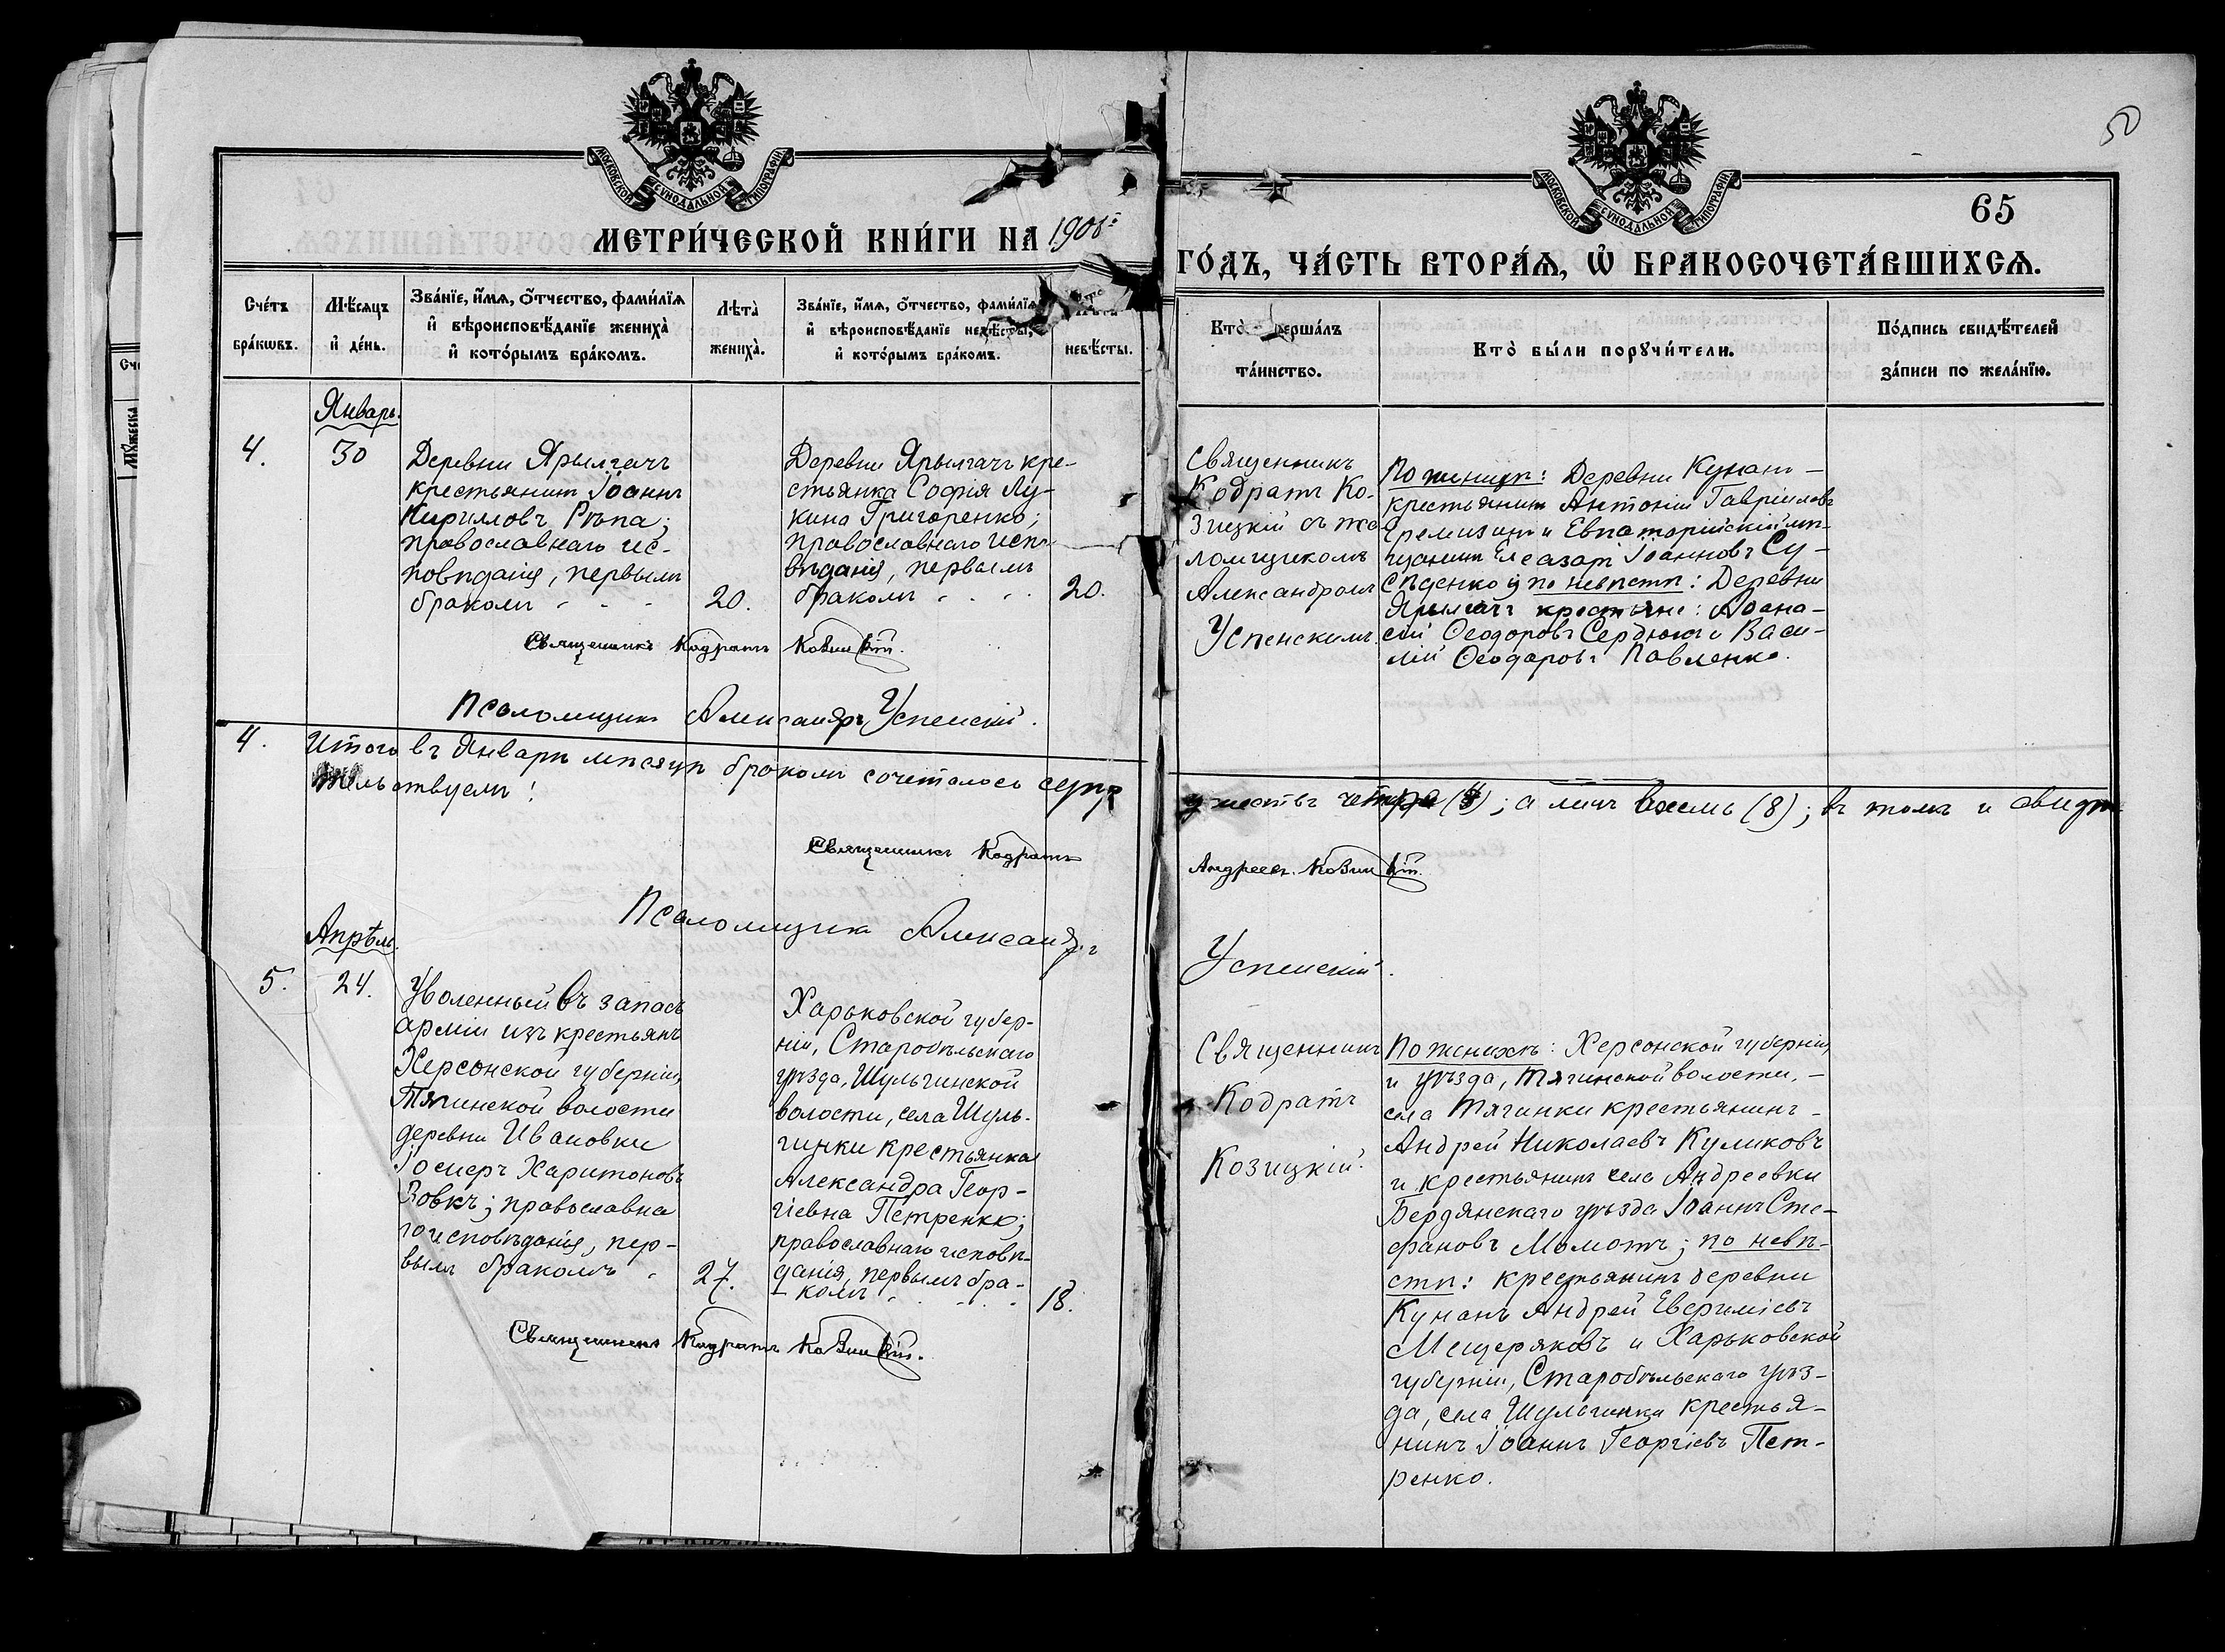 50
65
МОСКОВСКОЙ СѴНОДАЛЬНОЙ ТИПОГРАФІИ
МОСКОВСКОЙ СѴНОДАЛЬНОЙ ТИПОГРАФІИ
МЕТРИ́ЧЕСКОЙ КНИ́ГИ НА 1908
ГО́ДЪ, ЧА́СТЬ ВТОРА́Я, Ѡ҆ БРАКОСОЧЕТА́ВШИХСЯ.
Сче́тъ
бра́кѡвъ.
Мѣ́сяцъ
и҆ де́нь.
Зва́нїе, и҆́мя, ѻ҆́тчество, фами́лїя
и҆ вѣроисповѣ́данїе жениха̀
и҆ кото́рымъ бра́комъ.
Лѣта̀
жениха̀.
Зва́нїе, и҆́мя, ѻ҆́тчество, фами́лїя
и҆ вѣроисповѣ́данїе невѣ́сты,
и҆ кото́рымъ бра́комъ.
невѣ́сты.
Кто̀ вершáлъ
та́инство.
Кто̀ бы́ли порꙋчи́тели.
По́дпись свидѣ́телей
за́писи по жела́нїю.
Январь.
4.
30
Деревни Ярылгачъ
крестьянинъ Іоаннъ
Кирилловъ Рѣпа;
православнаго ис-
повѣданія, первымъ
бракомъ
20.
Деревни Ярылгачъ кре-
стьянка Софія Лу-
кина Григоренко;
православнаго испо-
вѣданія, первымъ
бракомъ
20.
Священникъ
Кодратъ Ко-
зицкій съ пса-
ломщикомъ
Александромъ
Успенскимъ.
По женихѣ: Деревни Кунанъ
крестьянинъ Антоній Гавріиловъ
Еремизинъ и Евпаторійскій мѣ-
щанинъ Елеазаръ Іоанновъ Су-
сѣденко; по невѣстѣ: Деревни
Ярылгачъ крестьяне: Аѳана-
сій Ѳеодоровъ Сердюкъ и Васи-
лій Ѳеодоровъ Павленко.
Священникъ Кодратъ Козицкій.
Псаломщикъ Александръ Успенскій.
4. Итого въ Январѣ мѣсяцѣ бракомъ сочеталось супр
ужествъ четыре (4); а лицъ восемь (8); въ томъ и свидѣ
тельствуемъ!
Священникъ Кодратъ
Андреевъ Козицкій.
Псаломщикъ Александръ
Успенскій.
Апрѣль.
5.
24.
Уволенный въ запасъ
арміи изъ крестьянъ
Херсонской губерніи,
Тягинской волости
деревни Ивановки
Харитоновъ
Вовкъ; православна
го исповѣданія, пер-
вымъ бракомъ
27.
Харьковской губер-
ніи, Старобѣльскаго
уѣзда, Шульгинской
волости, села Шуль-
гинки крестьянка
Александра Геор-
гіевна Петренко;
православнаго исповѣ-
данія, первымъ бра-
комъ
18.
Священникъ
Кодратъ
Козицкій.
По женихѣ: Херсонской губерніи
и уѣзда, Тягинской волости,
села Тягинки крестьянинъ
Андрей Николаевъ Куликовъ
и крестьянинъ села Андреевки
Бердянскаго уѣзда Іоаннъ Сте-
фановъ Момотъ; по невѣ-
стѣ: крестьянинъ деревни
Кунанъ Андрей Евѳиміевъ
Мещеряковъ и Харьковской
губерніи, Старобѣльскаго уѣз-
да, села Шульгинки крестья-
нинъ Іоаннъ Георгіевъ Пет-
ренко.
Священникъ Кодратъ Козицкій.